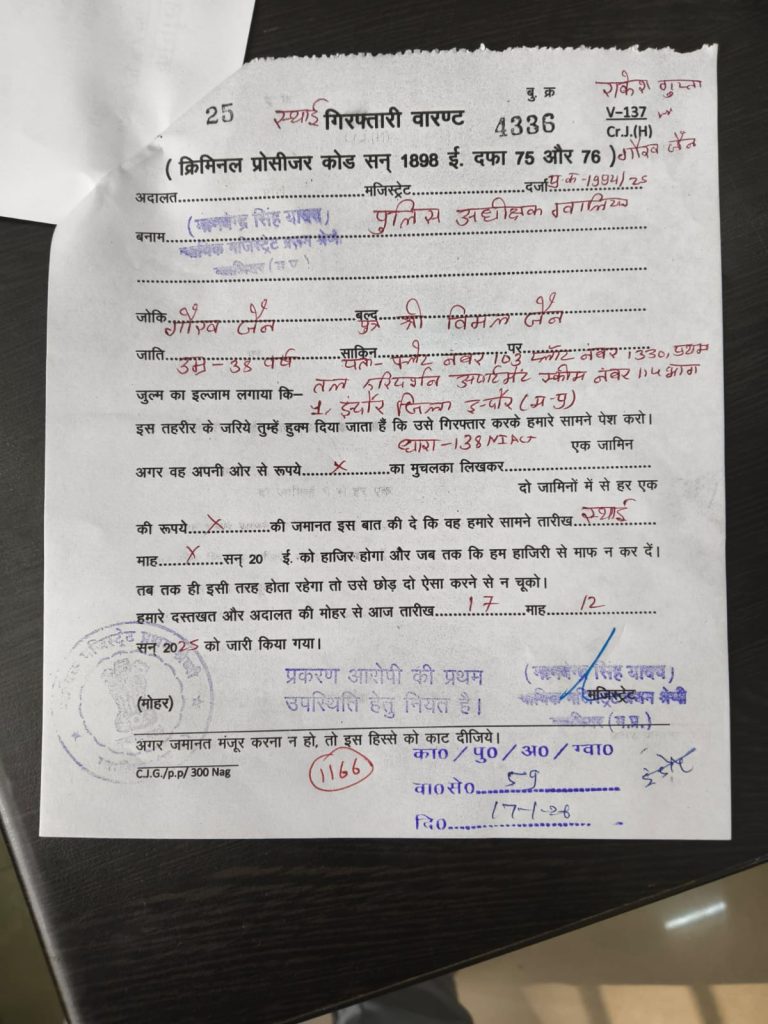 25 स्थाई गिरफ्तारी वारण्ट
बु. क्र
4336
राकेश गुप्ता
V-137
Cr.J.(H)
गौरव जैन
( क्रिमिनल प्रोसीजर कोड सन् 1898 ई. दफा 75 और 76 )
अदालत मजिस्ट्रेट दर्जा प्र.क.-1994/25
(मानवेन्द्र सिंह यादव)
बनाम पुलिस अधीक्षक ग्वालियर
न्यायिक मजिस्ट्रेट प्रथम श्रेणी
ग्वालियर (म.प्र.)
जोकि गौरव जैन वल्द पुत्र श्री विमल जैन
जाति उम्र-38 वर्ष साकिन पता- फ्लेट नंबर 103 प्लॉट नंबर 1330, प्रथम पर
जुल्म का इल्जाम लगाया कि– तल हरिदर्शन अपार्टमेंट स्कीम नंबर 114 भाग
1, इंदौर जिला इन्दौर (म.प्र)
इस तहरीर के जरिये तुम्हें हुक्म दिया जाता हैं कि उसे गिरफ्तार करके हमारे सामने पेश करो।
धारा-138 NI ACT एक जामिन
अगर वह अपनी ओर से रूपये x का मुचलका लिखकर
दो जामिनों में से हर एक
की रूपये X की जमानत इस बात की दे कि वह हमारे सामने तारीख स्थाई
माह X सन् 20 ई. को हाजिर होगा और जब तक कि हम हाजिरी से माफ न कर दें।
तब तक ही इसी तरह होता रहेगा तो उसे छोड़ दो ऐसा करने से न चूको।
हमारे दस्तखत और अदालत की मोहर से आज तारीख 17 माह 12
सन् 2025 को जारी किया गया।
प्रकरण आरोपी की प्रथम
उपस्थिति हेतु नियत है।
(मानवेन्द्र सिंह यादव)
(मोहर)
मजिस्ट्रेट
न्यायिक मजिस्ट्रेट प्रथम श्रेणी
ग्वालियर (म.प्र.)
अगर जमानत मंजूर करना न हो, तो इस हिस्से को काट दीजिये।
C.J.G./p.p/ 300 Nag
1166
का० / पु० / अ० / ग्वा०
वा०से० 59
दि० 17-1-26
इंदौर